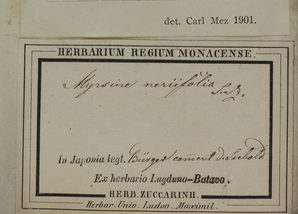 det. Carl Mez 1901.
HERBARIUM REGIUM MONACENSE.
Myrsine neriifolia
S. Z.
In Japonia legt. Bürger coment. de Siebold
Ex herbario Lugduno-Batavo.
HERB. ZUCCARINII.
Herbar. Univ. Ludov. Maximil.